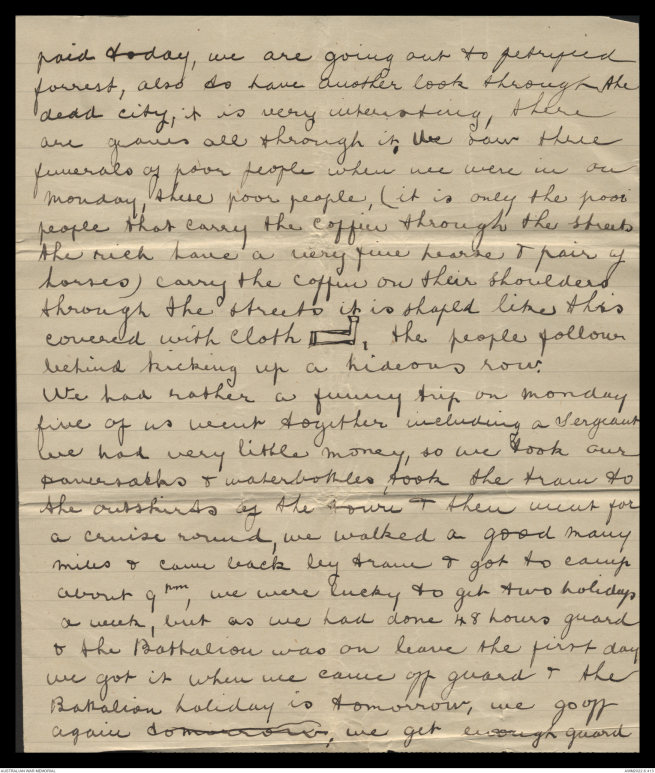 paid today, we are going out to petrified
forrest, also to have another look through the
dead city, it is very interesting, there
are graves all through it, We saw three
funerals of poor people when we were in on
monday, these poor people, (it is only the poor
people that carry the coffin through the streets
the rich have a very fine hearse & pair of
horses) carry the coffin on their shoulders
through the streets it is shapld like this
covered with cloth , the people follow
behind kicking up a hideous row.
We had rather a funny trip on monday
five of us went together including a Sergeant
we had very little money, so we took our
haversacks & waterbottles, took the tram to
the outskirts of the town & then went for
a cruise round, we walked a good many
miles & came back by tram & got to camp
about 9 pm, we were lucky to get two holidays
a week, but as we had done 48 hours guard
& the Battalion was on leave the first day
we got it when we came off guard & the
Battalion holiday is tomorrow, we go off
again tomorrow, we get enough guard
AUSTRALIAN WAR MEMORIAL